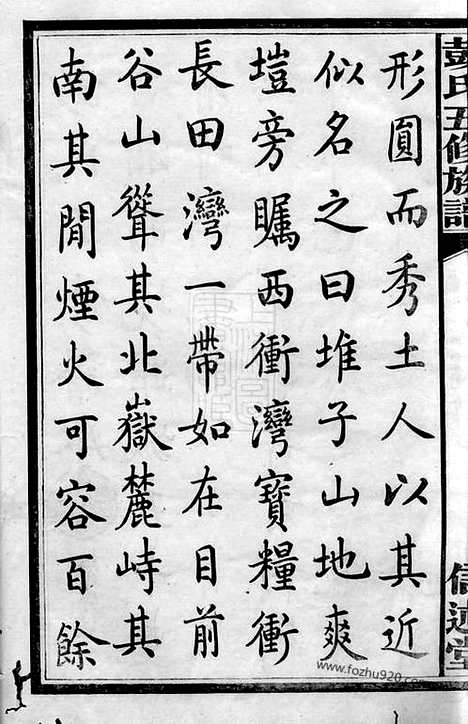 彭氏五修族譜
信述堂
形圓而秀土人以其近
似名之曰堆子山地爽
塏旁矚西衝灣寶糧衝
長田灣一帶如在目前
谷山聳其北嶽麓峙其
南其閒煙火可容百餘
www.fozhu920.com